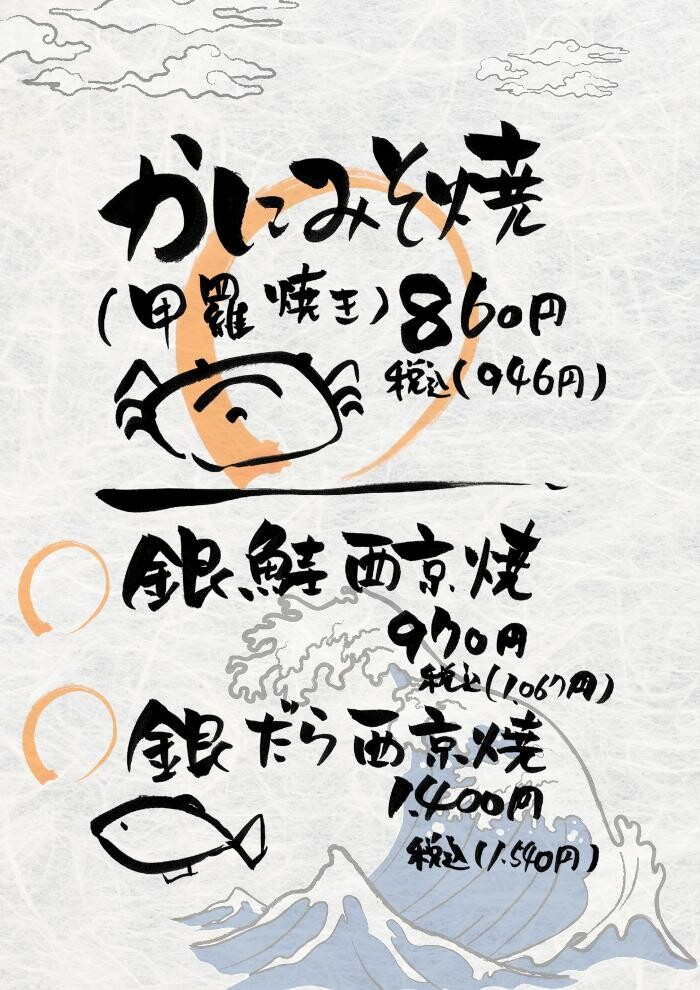 かにみそ焼
(甲羅焼き)860円
税込(946円)
銀鮭西京焼
970円
税込(1,067円)
銀だら西京焼
1,400円
税込(1,540円)